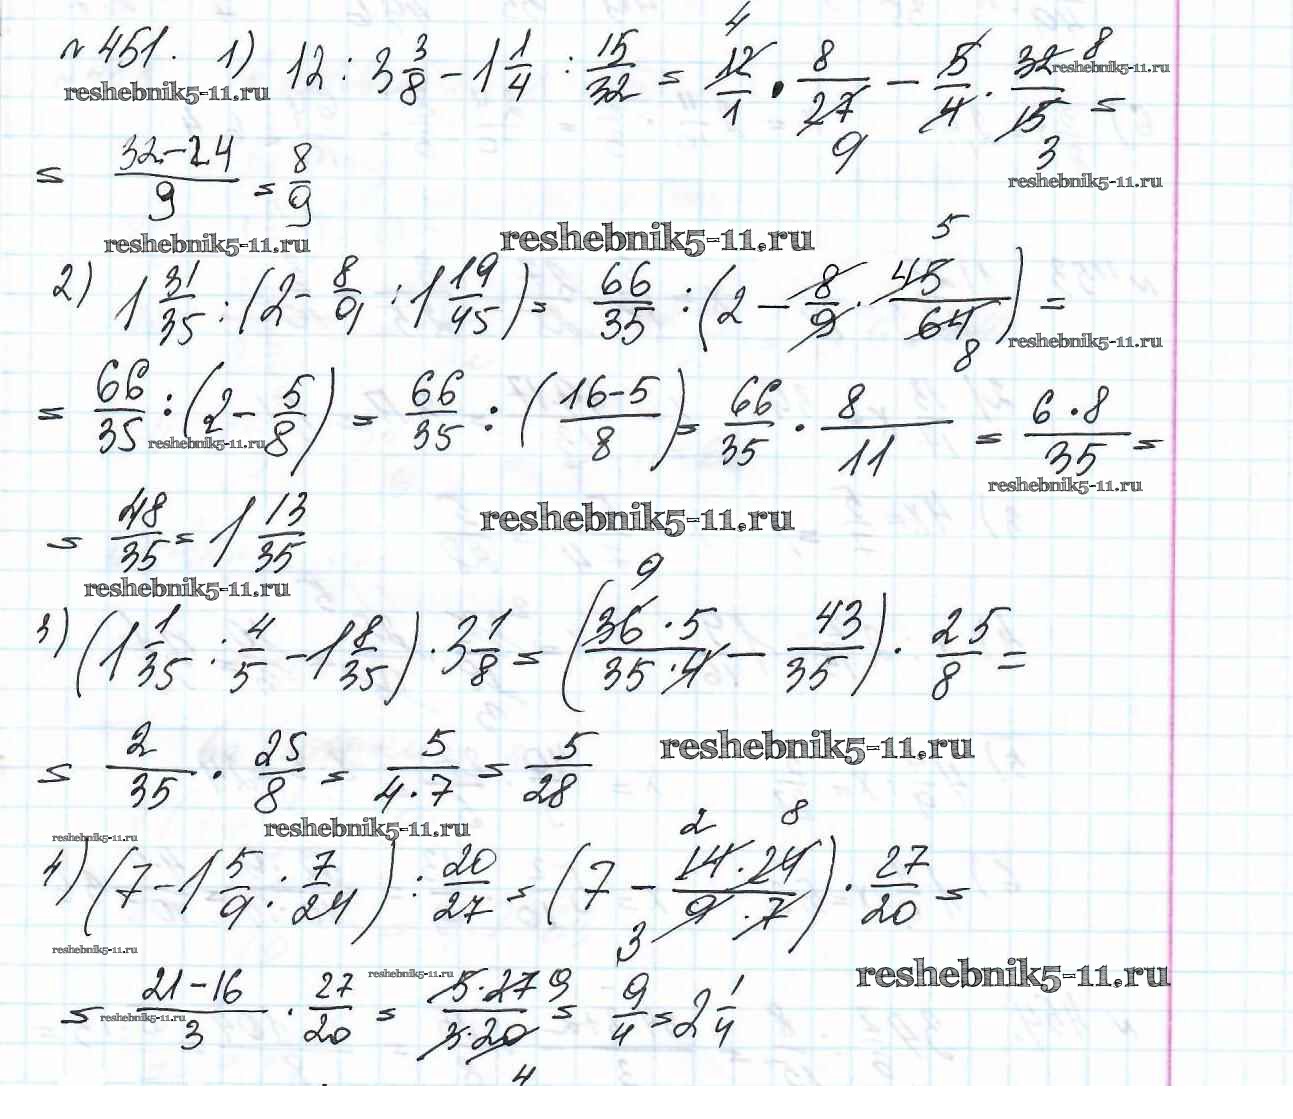 № 451. 1) 12 : 3 3/8 − 1 1/4 : 15/32 = 12/1 · 8/27 − 5/4 · 32/15 = (4, 9, 8, 3)
reshebnik5-11.ru reshebnik5-11.ru
= (32−24)/9 = 8/9
reshebnik5-11.ru
reshebnik5-11.ru reshebnik5-11.ru
2) 1 31/35 : (2 − 8/9 : 1 19/45) = 66/35 : (2 − 8/9 · 45/64) = (5, 8)
reshebnik5-11.ru
= 66/35 : (2 − 5/8) = 66/35 : ((16−5)/8) = 66/35 · 8/11 = (6·8)/35 =
reshebnik5-11.ru reshebnik5-11.ru
= 48/35 = 1 13/35
reshebnik5-11.ru
reshebnik5-11.ru
3) (1 1/35 : 4/5 − 1 8/35) · 3 1/8 = ((36·5)/(35·4) − 43/35) · 25/8 = (9)
= 2/35 · 25/8 = 5/(4·7) = 5/28
reshebnik5-11.ru
reshebnik5-11.ru reshebnik5-11.ru
4) (7 − 1 5/9 : 7/24) : 20/27 = (7 − (14·24)/(9·7)) · 27/20 = (2, 8, 3)
reshebnik5-11.ru reshebnik5-11.ru reshebnik5-11.ru
= (21−16)/3 · 27/20 = (5·27)/(3·20) = 9/4 = 2 1/4 (9, 4)
reshebnik5-11.ru